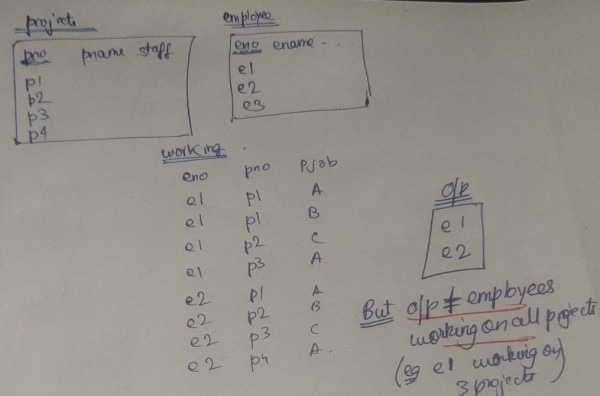 projects
pno pname staff
p1
p2
p3
p4
employee
eno ename - . . .
e1
e2
e3
working .
eno pno Pjob
e1 p1 A
e1 p1 B
e1 p2 C
e1 p3 A
e2 p1 A
e2 p2 B
e2 p3 C
e2 p4 A.
o/p
e1
e2
But o/p ≠ employees
working on all projects
(eg e1 working on
3 projects)